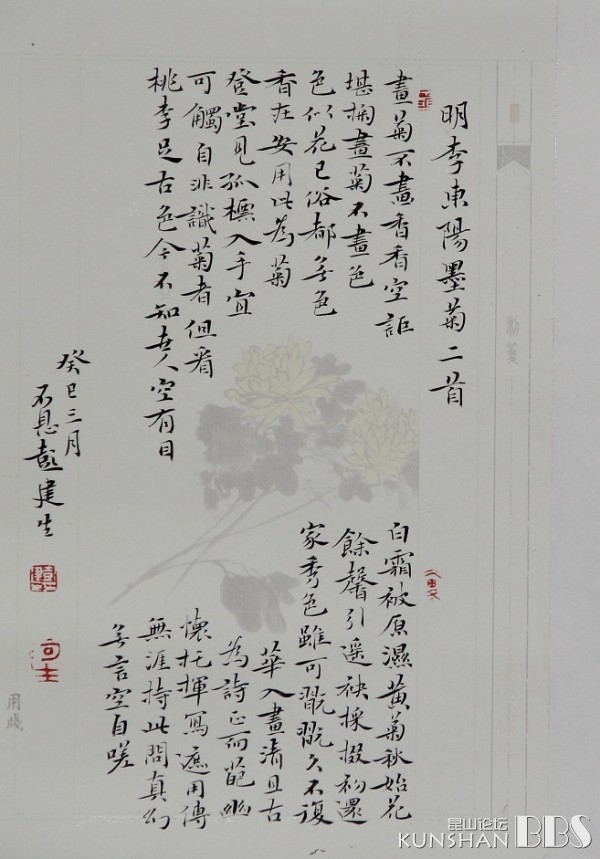 明李東陽墨菊二首
畫菊不畫香香空詎
堪掬畫菊不畫色
色似花已俗都無色
香在安用此為菊
登堂見孤標入手宜
可觸自非識菊者但看
桃李足古色今不知世人空有目
白霜被原濕黃菊秋始花
餘馨引遥袂採掇初還
家秀色雖可翫翫久不復
華入畫清且古
為詩正而葩幽
懷托揮寫遮用傳
無涯持此問真幻
無言空自嗟
癸巳三月
彭建生
用牋
昆山论坛
KUNSHAN BBS